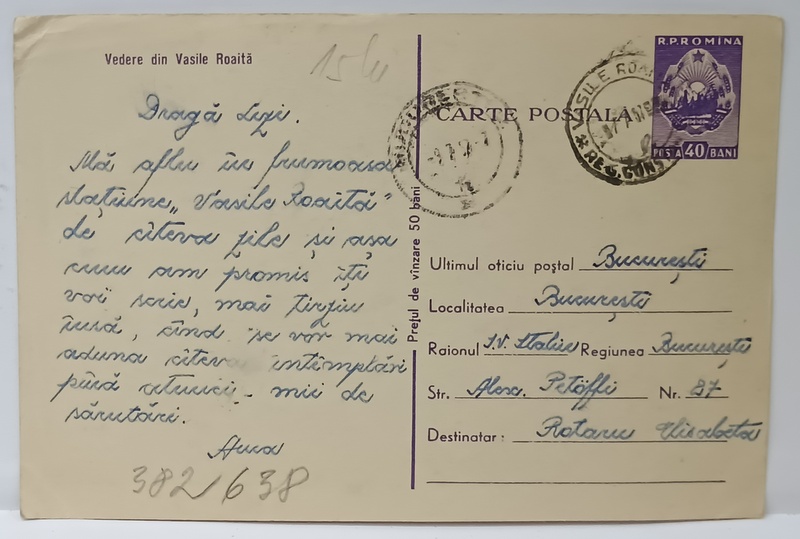 Vedere din Vasile Roaită
15 lei
Dragă Lizi.
Mă aflu în frumoasa
stațiune „Vasile Roaită”
de cîteva zile și așa
cum am promis îți
voi scrie, mai tîrziu
însă, cînd se vor mai
aduna cîteva întîmplări
pînă atunci - mii de
sărutări.
Anca
382/638
Prețul de vînzare 50 bani
CARTE POSTALA
R.P.ROMINA
POSTA 40 BANI
VASILE ROAI
REG. CONS
Ultimul oficiu poștal București
Localitatea București
Raionul I.V. Stalin Regiunea București
Str. Alex. Petöffi Nr. 87
Destinatar: Rotaru Elisabeta